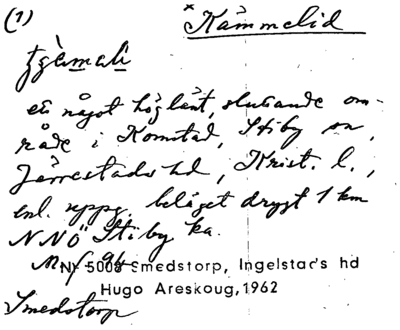 (1) × Kämmelid
ett något höglänt, sluttande om-
råde i Komstad, Stiby sn,
Järrestads hd, Krist. l.,
enl. uppg. beläget drygt 1 km
NNÖ Stiby ka.
Nr 5008 Smedstorp, Ingelstad's hd
Hugo Areskoug, 1962
Smedstorp